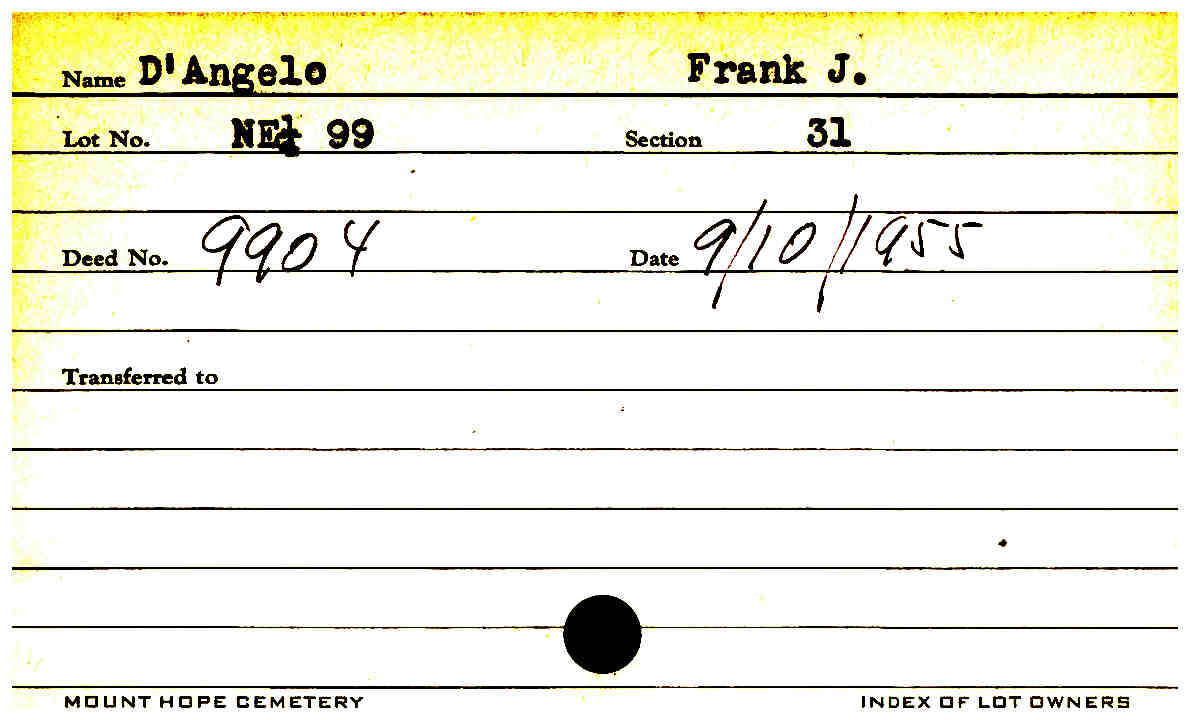 Name D'Angelo Frank J.
Lot No. NE¼ 99 Section 31
Deed No. 9904 Date 9/10/1955
Transferred to
MOUNT HOPE CEMETERY INDEX OF LOT OWNERS